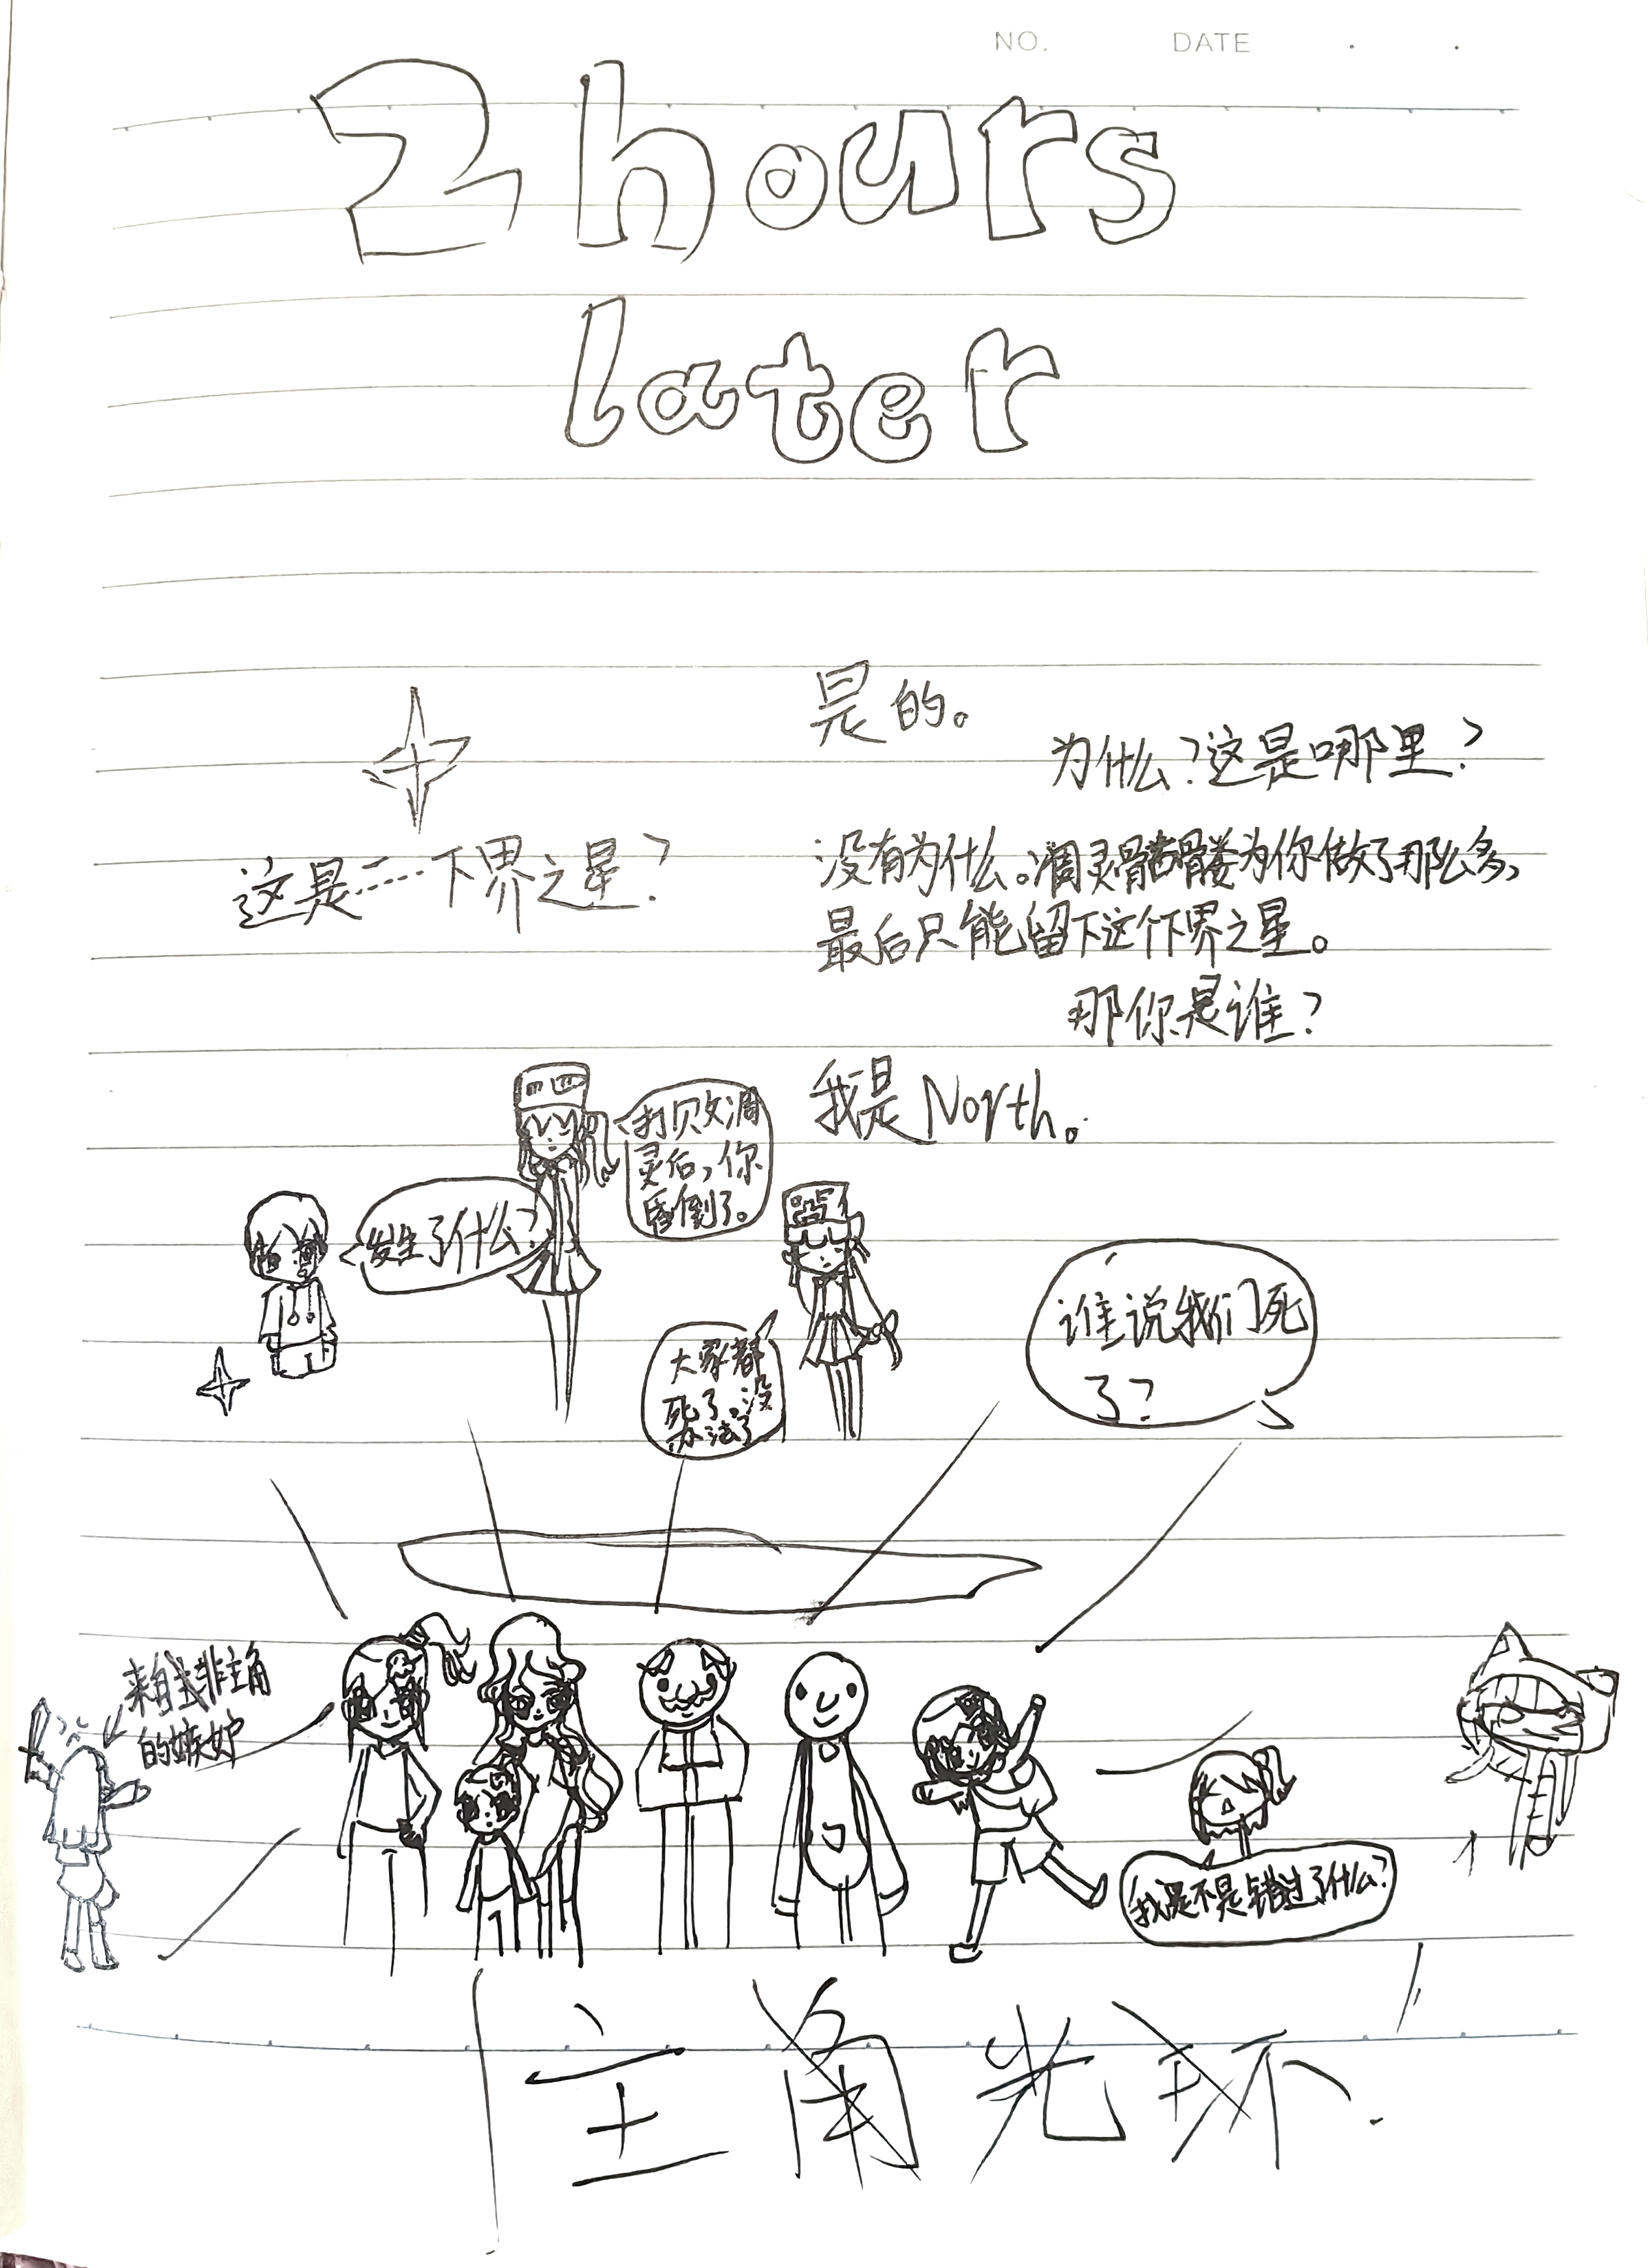 NO. DATE
2 hours
later
是的。
为什么?这是哪里?
这是……下界之星?
没有为什么。凋灵骷髅为你做了那么多,
最后只能留下这个下界之星。
那你是谁?
我是North。
打败凋
灵后,你
昏倒了。
发生了什么?
大家都
死了,没
办法了
谁说我们死
了?
来自非主角
的嫉妒
我是不是错过了什么?
主角光环